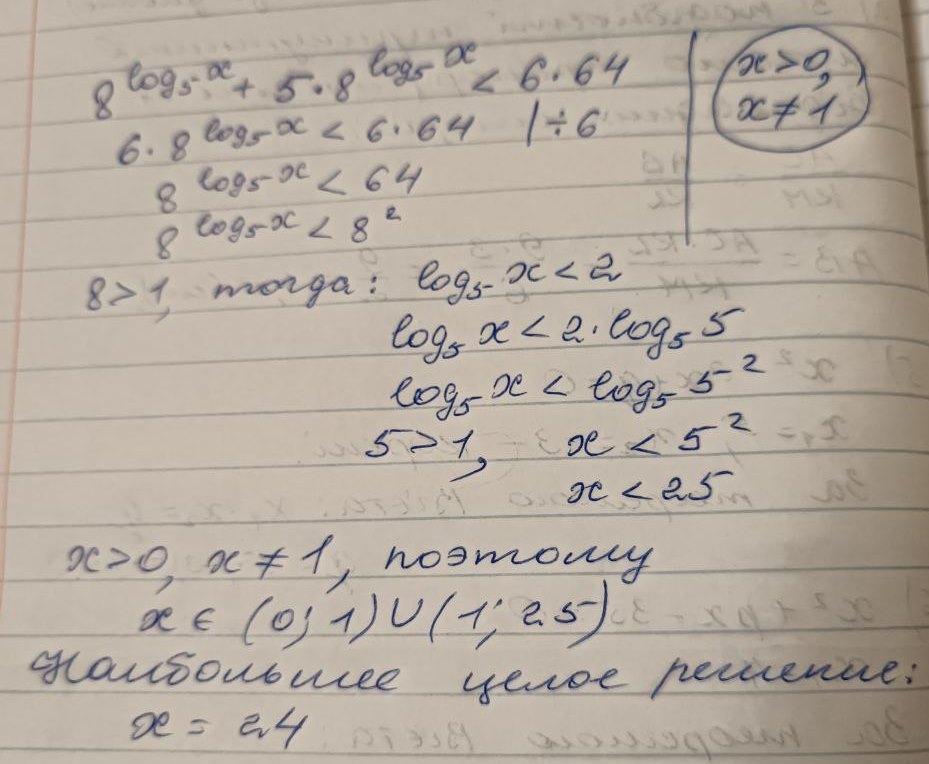 8^{log₅ x} + 5·8^{log₅ x} < 6·64
x>0,
x≠1
6·8^{log₅ x} < 6·64 |÷6
8^{log₅ x} < 64
8^{log₅ x} < 8²
8>1, тогда: log₅ x < 2
log₅ x < 2·log₅ 5
log₅ x < log₅ 5²
5>1, x < 5²
x < 25
x>0, x≠1, поэтому
x ∈ (0; 1)∪(1; 25)
Наибольшее целое решение:
x = 24